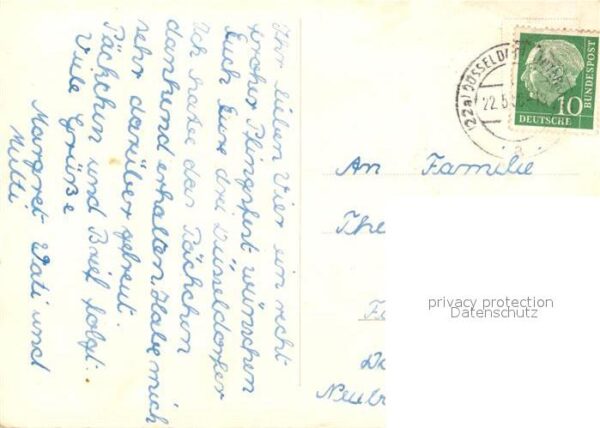 Ihr lieben Vier ein recht
frohes Pfingstfest wünschen
Euch Eure drei Düsseldorfer
Ich habe das Päckchen
dankend erhalten. Habe mich
sehr darüber gefreut.
Päckchen und Brief folgt.
Viele Grüße
Margret Vati und
Mutti
An Familie
The
Neub
(22a) DÜSSELDORF
22.5.
10
DEUTSCHE
BUNDESPOST
privacy protection
Datenschutz